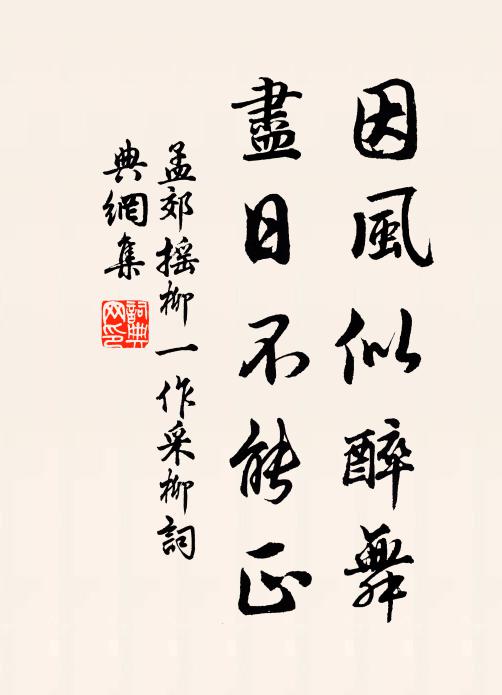 因風似醉舞
盡日不能正
孟郊摇柳一作采柳詞
典網集
詞典網印